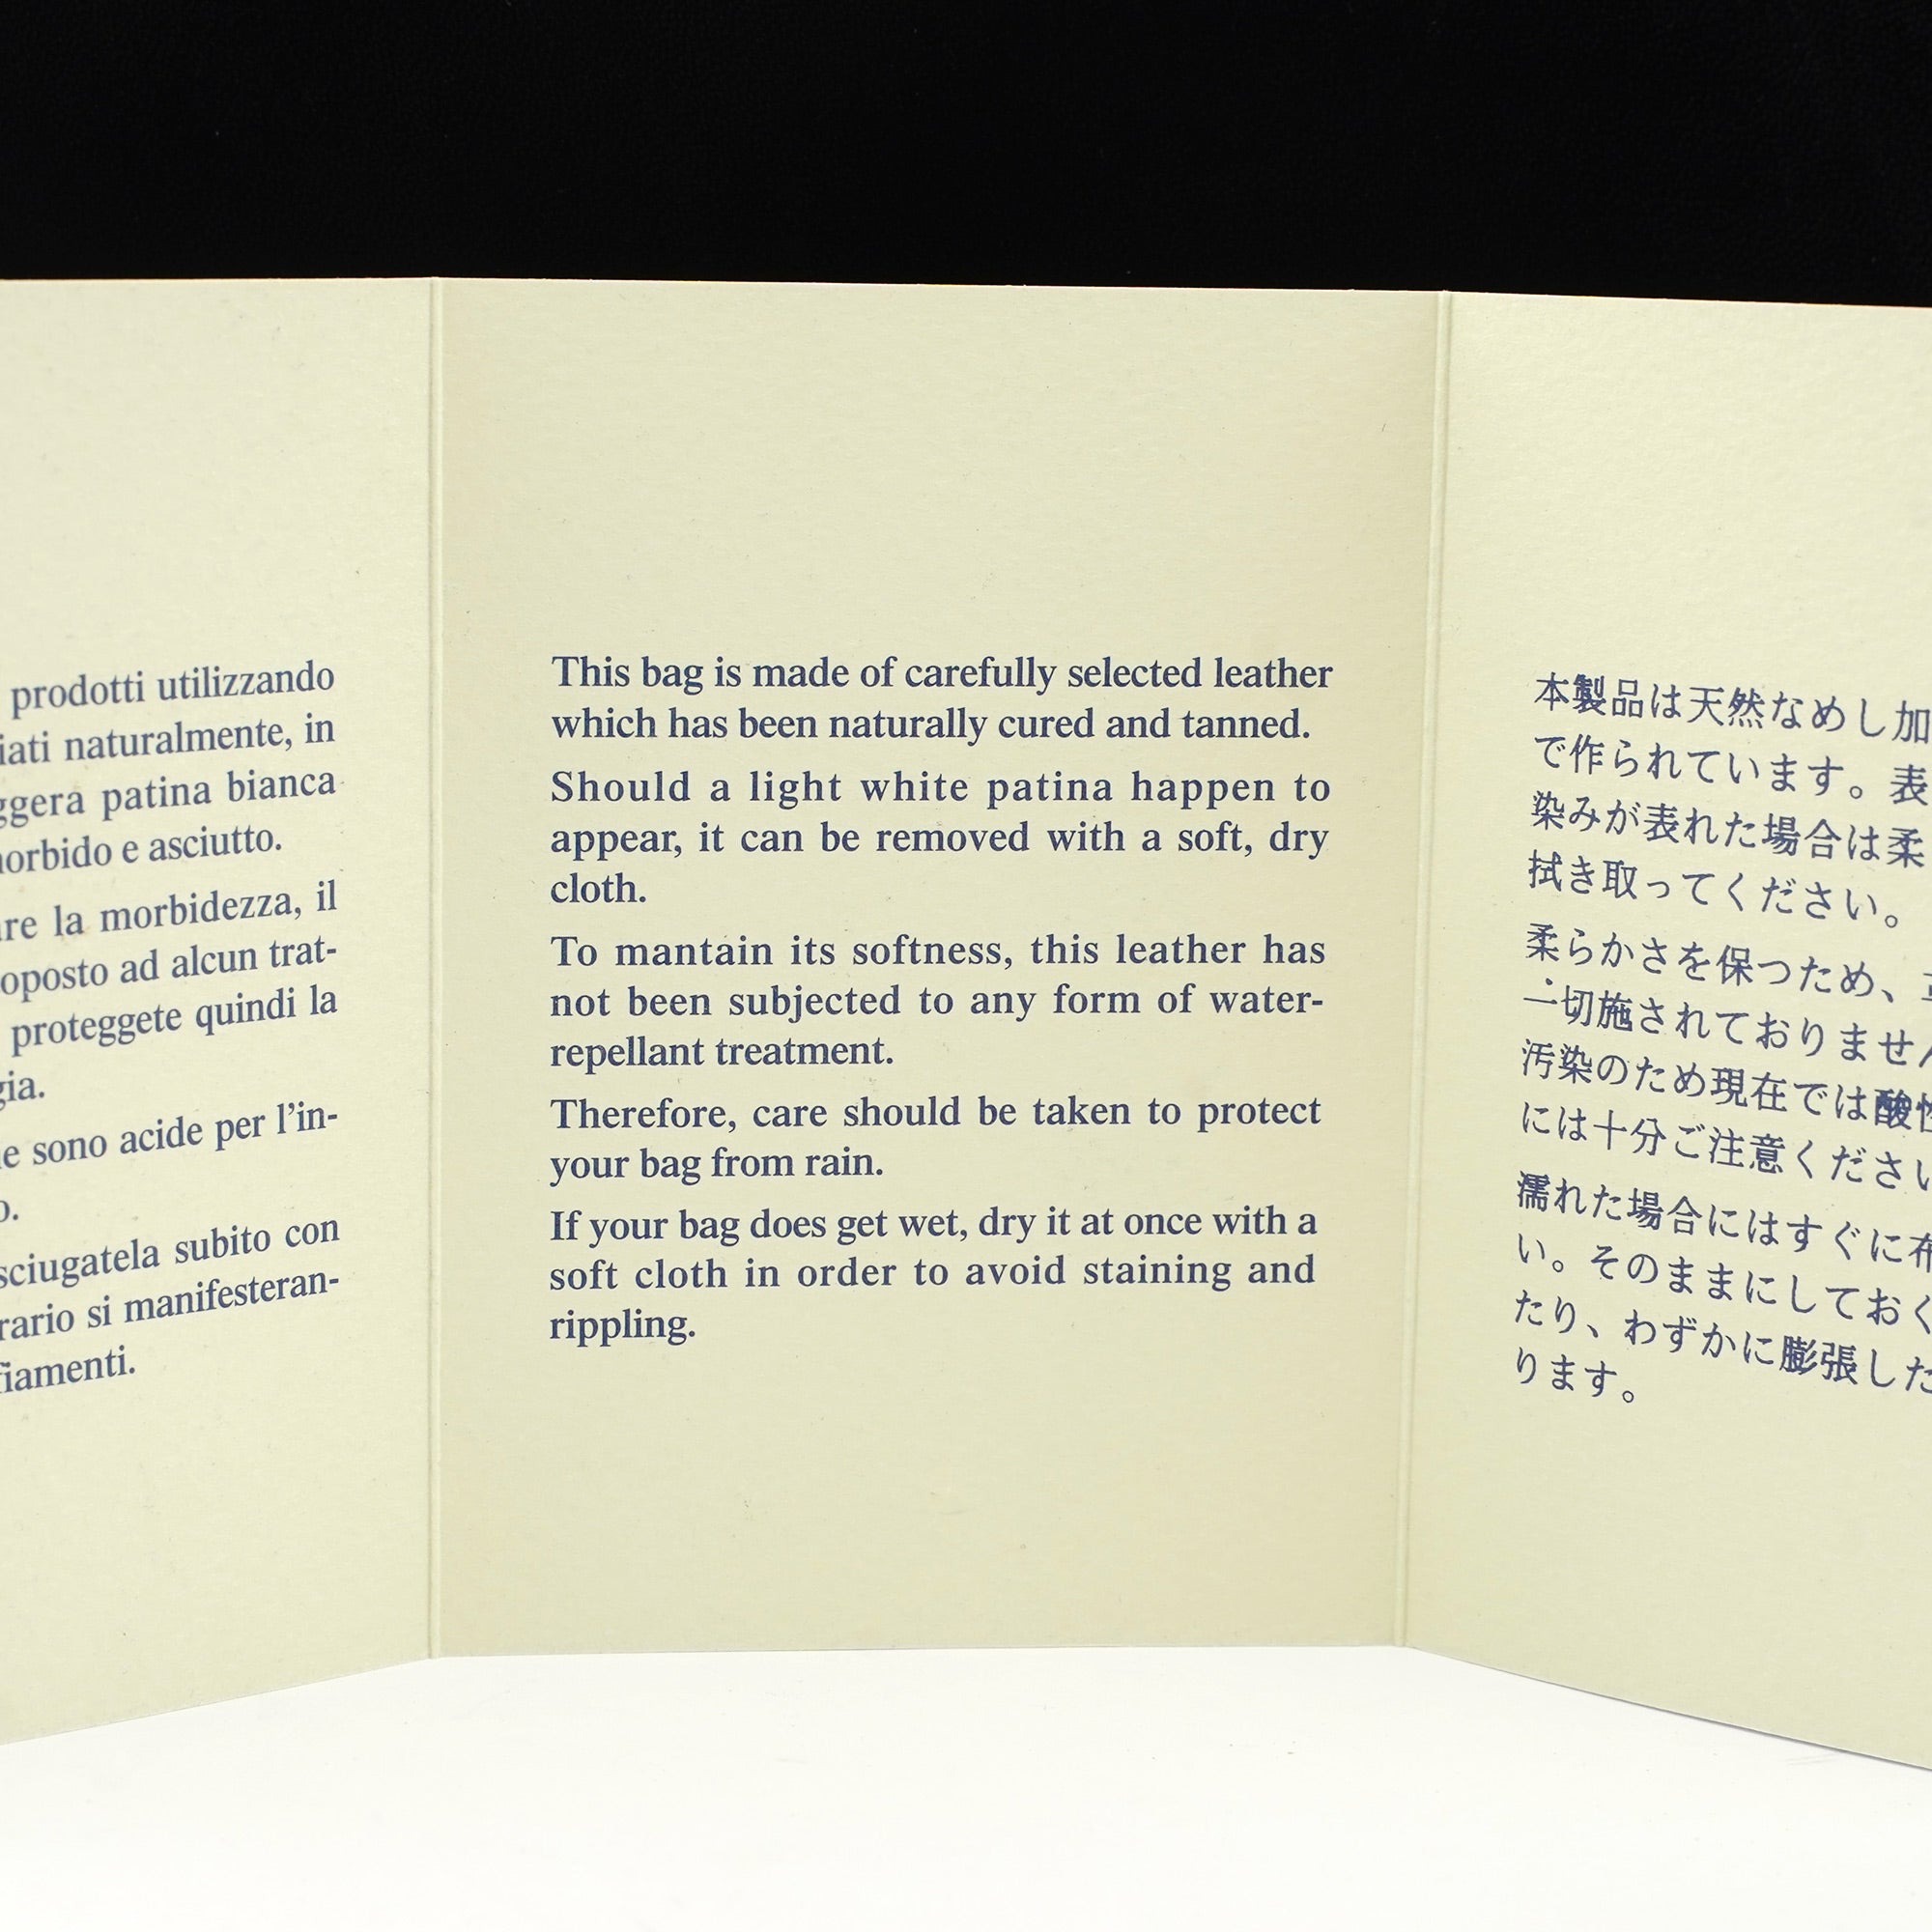 prodotti utilizzando
naturalmente, in
patina bianca
e asciutto.
la morbidezza, il
ad alcun trat-
proteggete quindi la
sono acide per l’in-
subito con
si manifesteran-
This bag is made of carefully selected leather
which has been naturally cured and tanned.
Should a light white patina happen to
appear, it can be removed with a soft, dry
cloth.
To mantain its softness, this leather has
not been subjected to any form of water-
repellant treatment.
Therefore, care should be taken to protect
your bag from rain.
If your bag does get wet, dry it at once with a
soft cloth in order to avoid staining and
rippling.
本製品は天然なめし加
で作られています。表
染みが表れた場合は柔
拭き取ってください。
柔らかさを保つため、
一切施されておりません
汚染のため現在では酸性
には十分ご注意ください
濡れた場合にはすぐに布
い。そのままにしておく
たり、わずかに膨張した
ります。